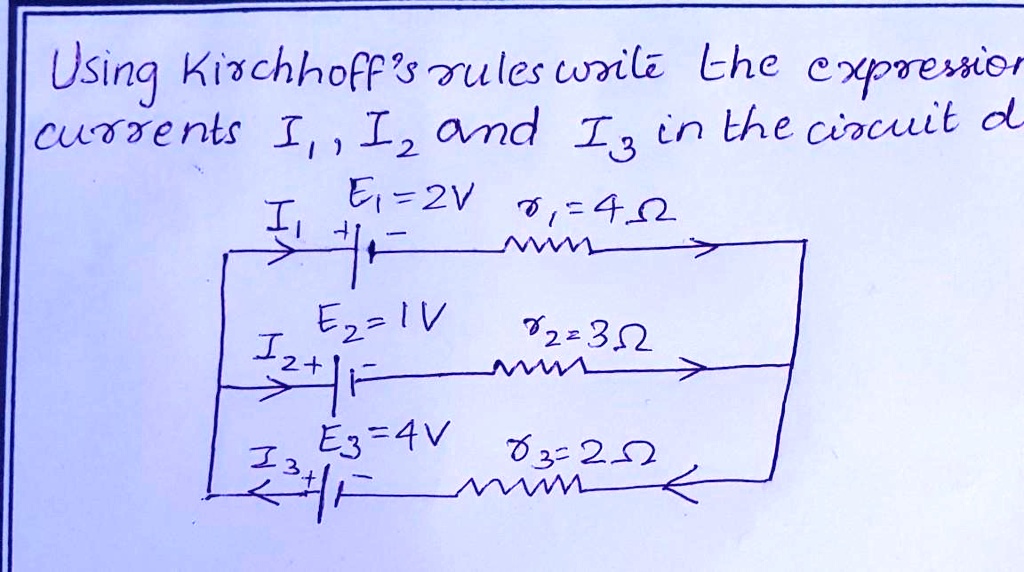 Using Kirchhoff's rules write the expression
currents I₁, I₂ and I₃ in the circuit d
E₁=2V r₁=4Ω
I₁ + -
E₂=1V r₂=3Ω
I₂ + -
E₃=4V r₃=2Ω
I₃ + -